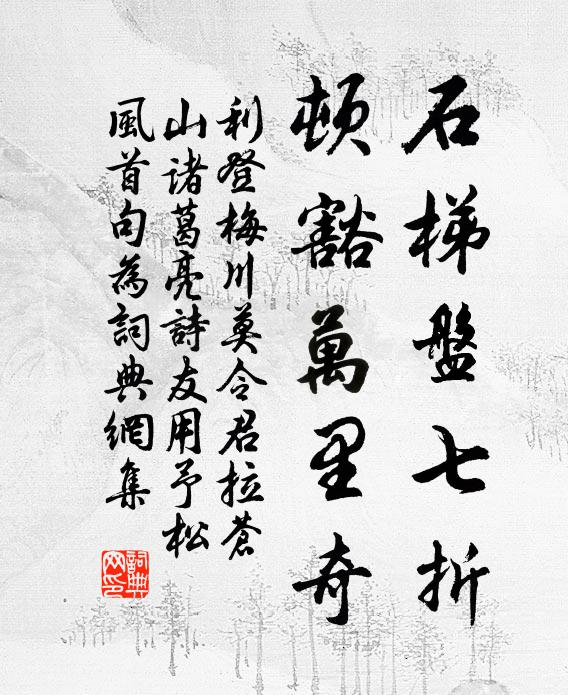 石梯盤七折
頓豁萬里奇
利登梅川莫令君拉蒼
山諸葛亮詩友用予松
風首句為詞典網集
詞典
网印